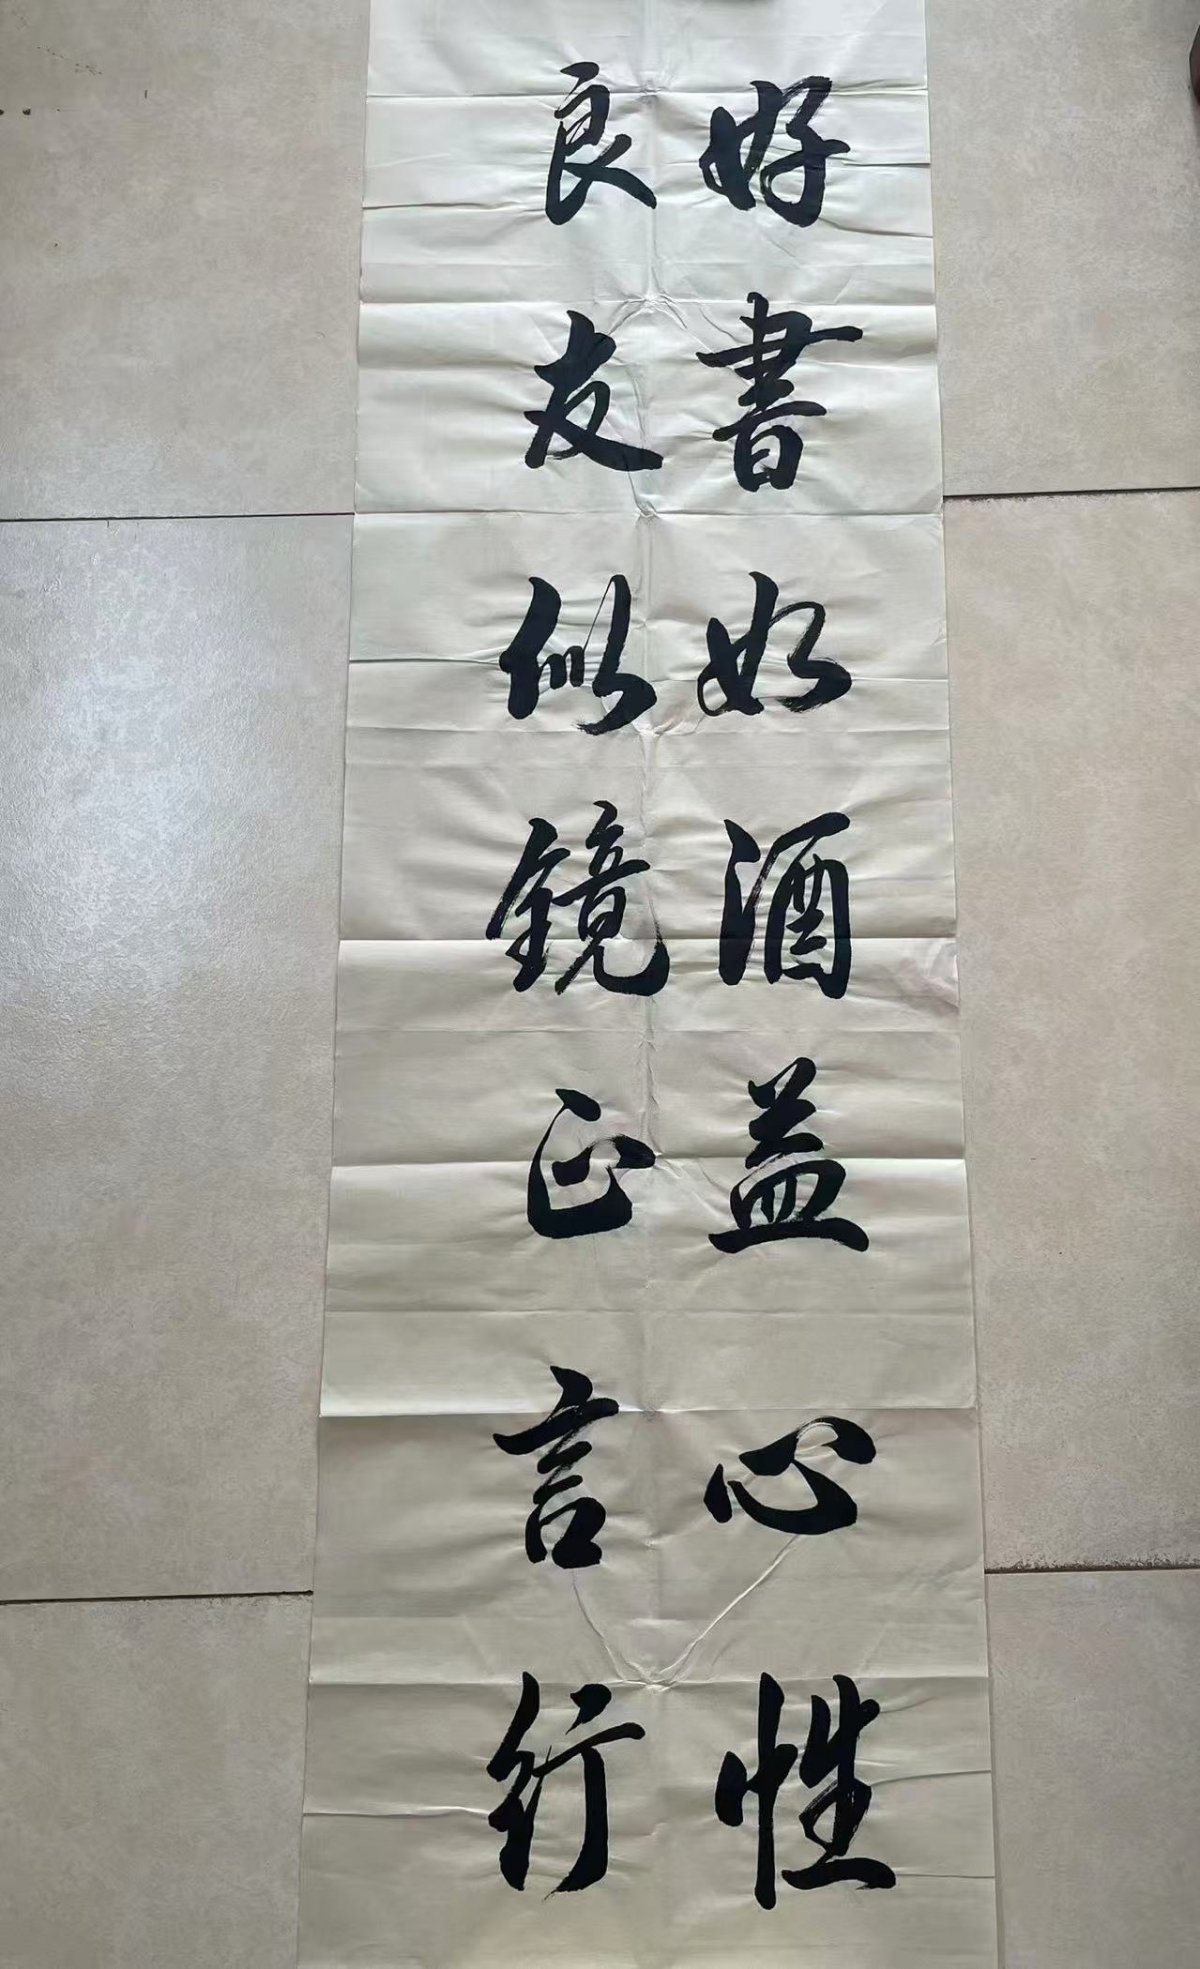 好書如酒益心性
良友似鏡正言行